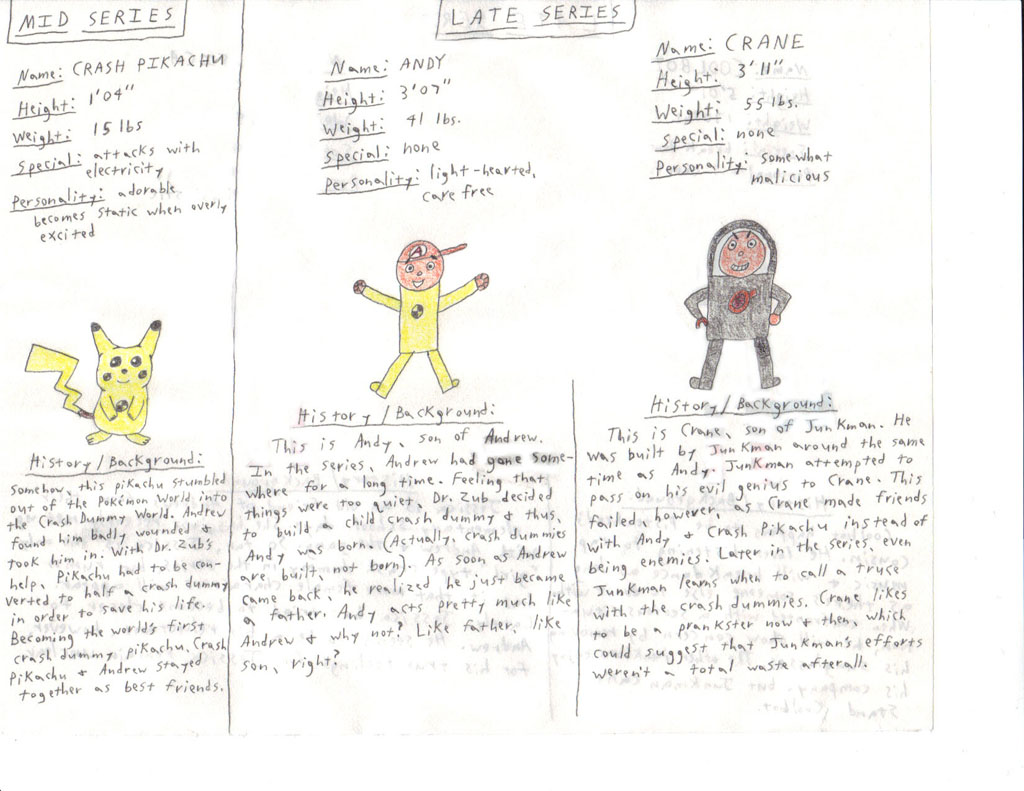 MID SERIES
Name: CRASH PIKACHU
Height: 1'04"
Weight: 15 lbs
Special: attacks with
electricity
Personality: adorable
becomes static when overly
excited
History/Background:
Somehow, this pikachu stumbled
out of the Pokémon World into
the Crash Dummy World. Andrew
found him badly wounded &
took him in. With Dr. Zub's
help, Pikachu had to be con-
verted to half a crash dummy
in order to save his life.
Becoming the world's first
crash dummy pikachu, Crash
Pikachu & Andrew stayed
together as best friends.
LATE SERIES
Name: ANDY
Height: 3'07"
Weight: 41 lbs.
Special: none
Personality: light-hearted,
care free
A
History/Background:
This is Andy, son of Andrew.
In the series, Andrew had gone some-
where for a long time. Feeling that
things were too quiet, Dr. Zub decided
to build a child crash dummy & thus,
Andy was born. (Actually, crash dummies
are built, not born). As soon as Andrew
came back, he realized he just became
a father. Andy acts pretty much like
Andrew & why not? Like father, like
son, right?
Name: CRANE
Height: 3'11"
Weight: 55 lbs.
Special: none
Personality: somewhat
malicious
History/Background:
This is Crane, son of Junkman. He
was built by Junkman around the same
time as Andy. Junkman attempted to
pass on his evil genius to Crane. This
failed, however, as Crane made friends
with Andy & Crash Pikachu instead of
being enemies. Later in the series, even
Junkman learns when to call a truce
with the crash dummies. Crane likes
to be a prankster now & then, which
could suggest that Junkman's efforts
weren't a total waste afterall.